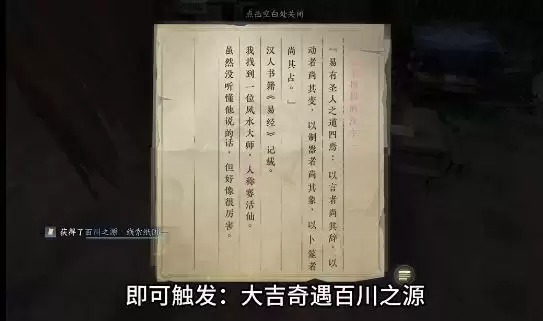 点击空白处关闭
『易有圣人之道四焉：以言者尚其辞，以
动者尚其变，以制器者尚其象，以卜筮者
尚其占。』
汉人书籍《易经》记载。
我找到一位风水大师，人称赛活仙。
虽然没听懂他说的话，但好像很厉害。
获得了百川之源·线索纸
即可触发：大吉奇遇百川之源